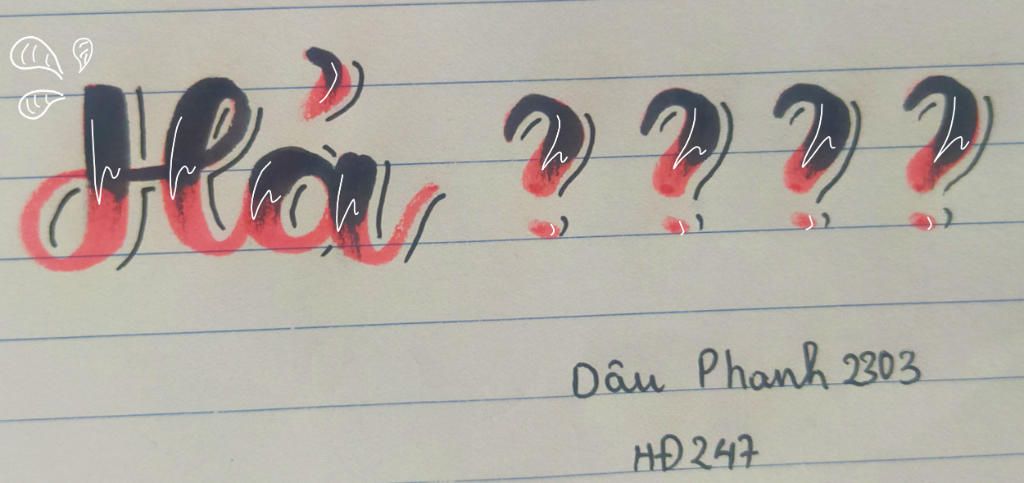 Hả ????
Dâu Phanh 2303
HĐ247